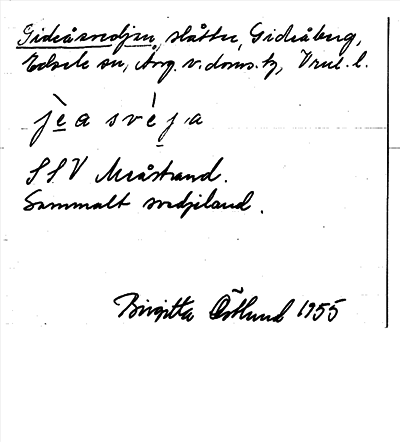 Gideåsvedjan, slåtter, Gideåberg,
Edsele sn, Ång. v. doms. tg, Vrul. l.
jè̱a svè̱ja
SSV Mråstrand.
Gammalt svedjeland.
Birgitta Östlund 1955